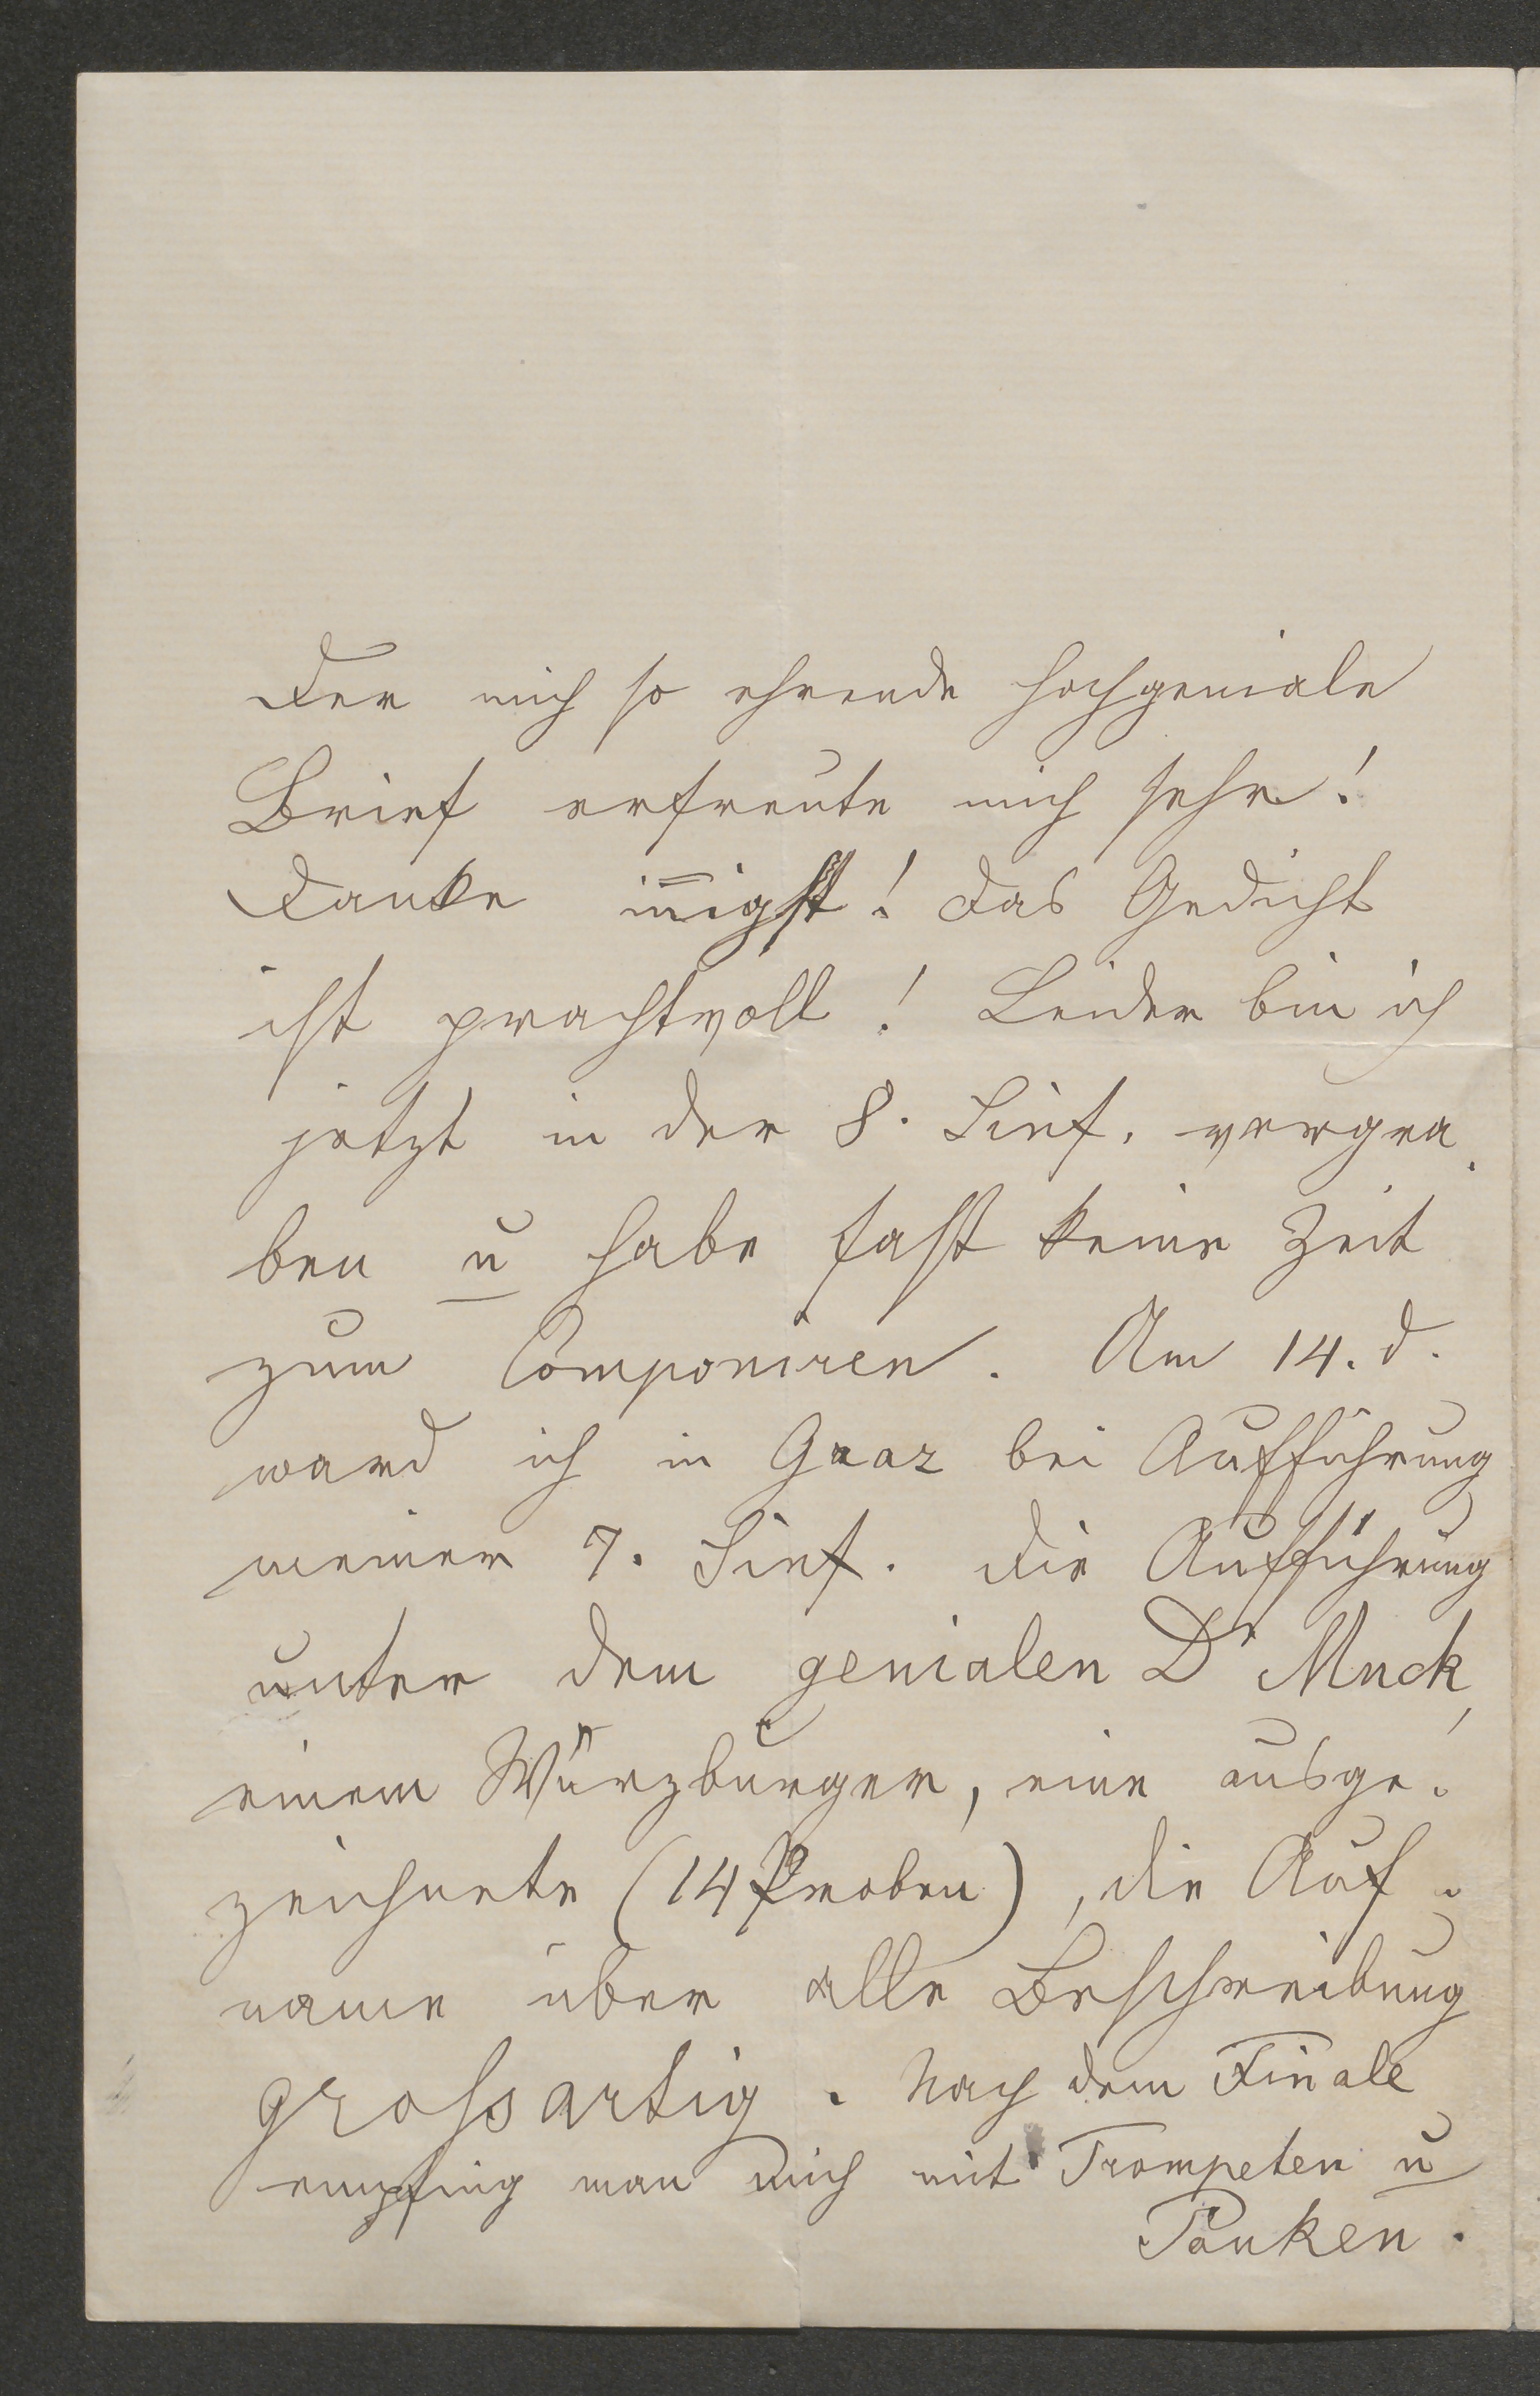 Der mich so ehrende hochgeniale
Brief erfreute mich sehr!
Danke in̅igst! Das Gedicht
ist prachtvoll! Leider bin ich
jetzt in der 8. Sinf. vergra.
ben u habe fast keine Zeit
zum Componiren. Am 14. d.
ward ich in Graz bei Aufführung
meiner 7. Sinf. Die Aufführung
unter dem genialen Dr Muck,
einem Würzburger, eine ausge.
zeichnete (14 Proben), die Auf.
name über alle Beschreibung
grossartig. Nach dem Finale
empfing man mich mit Trompeten u
Pauken.